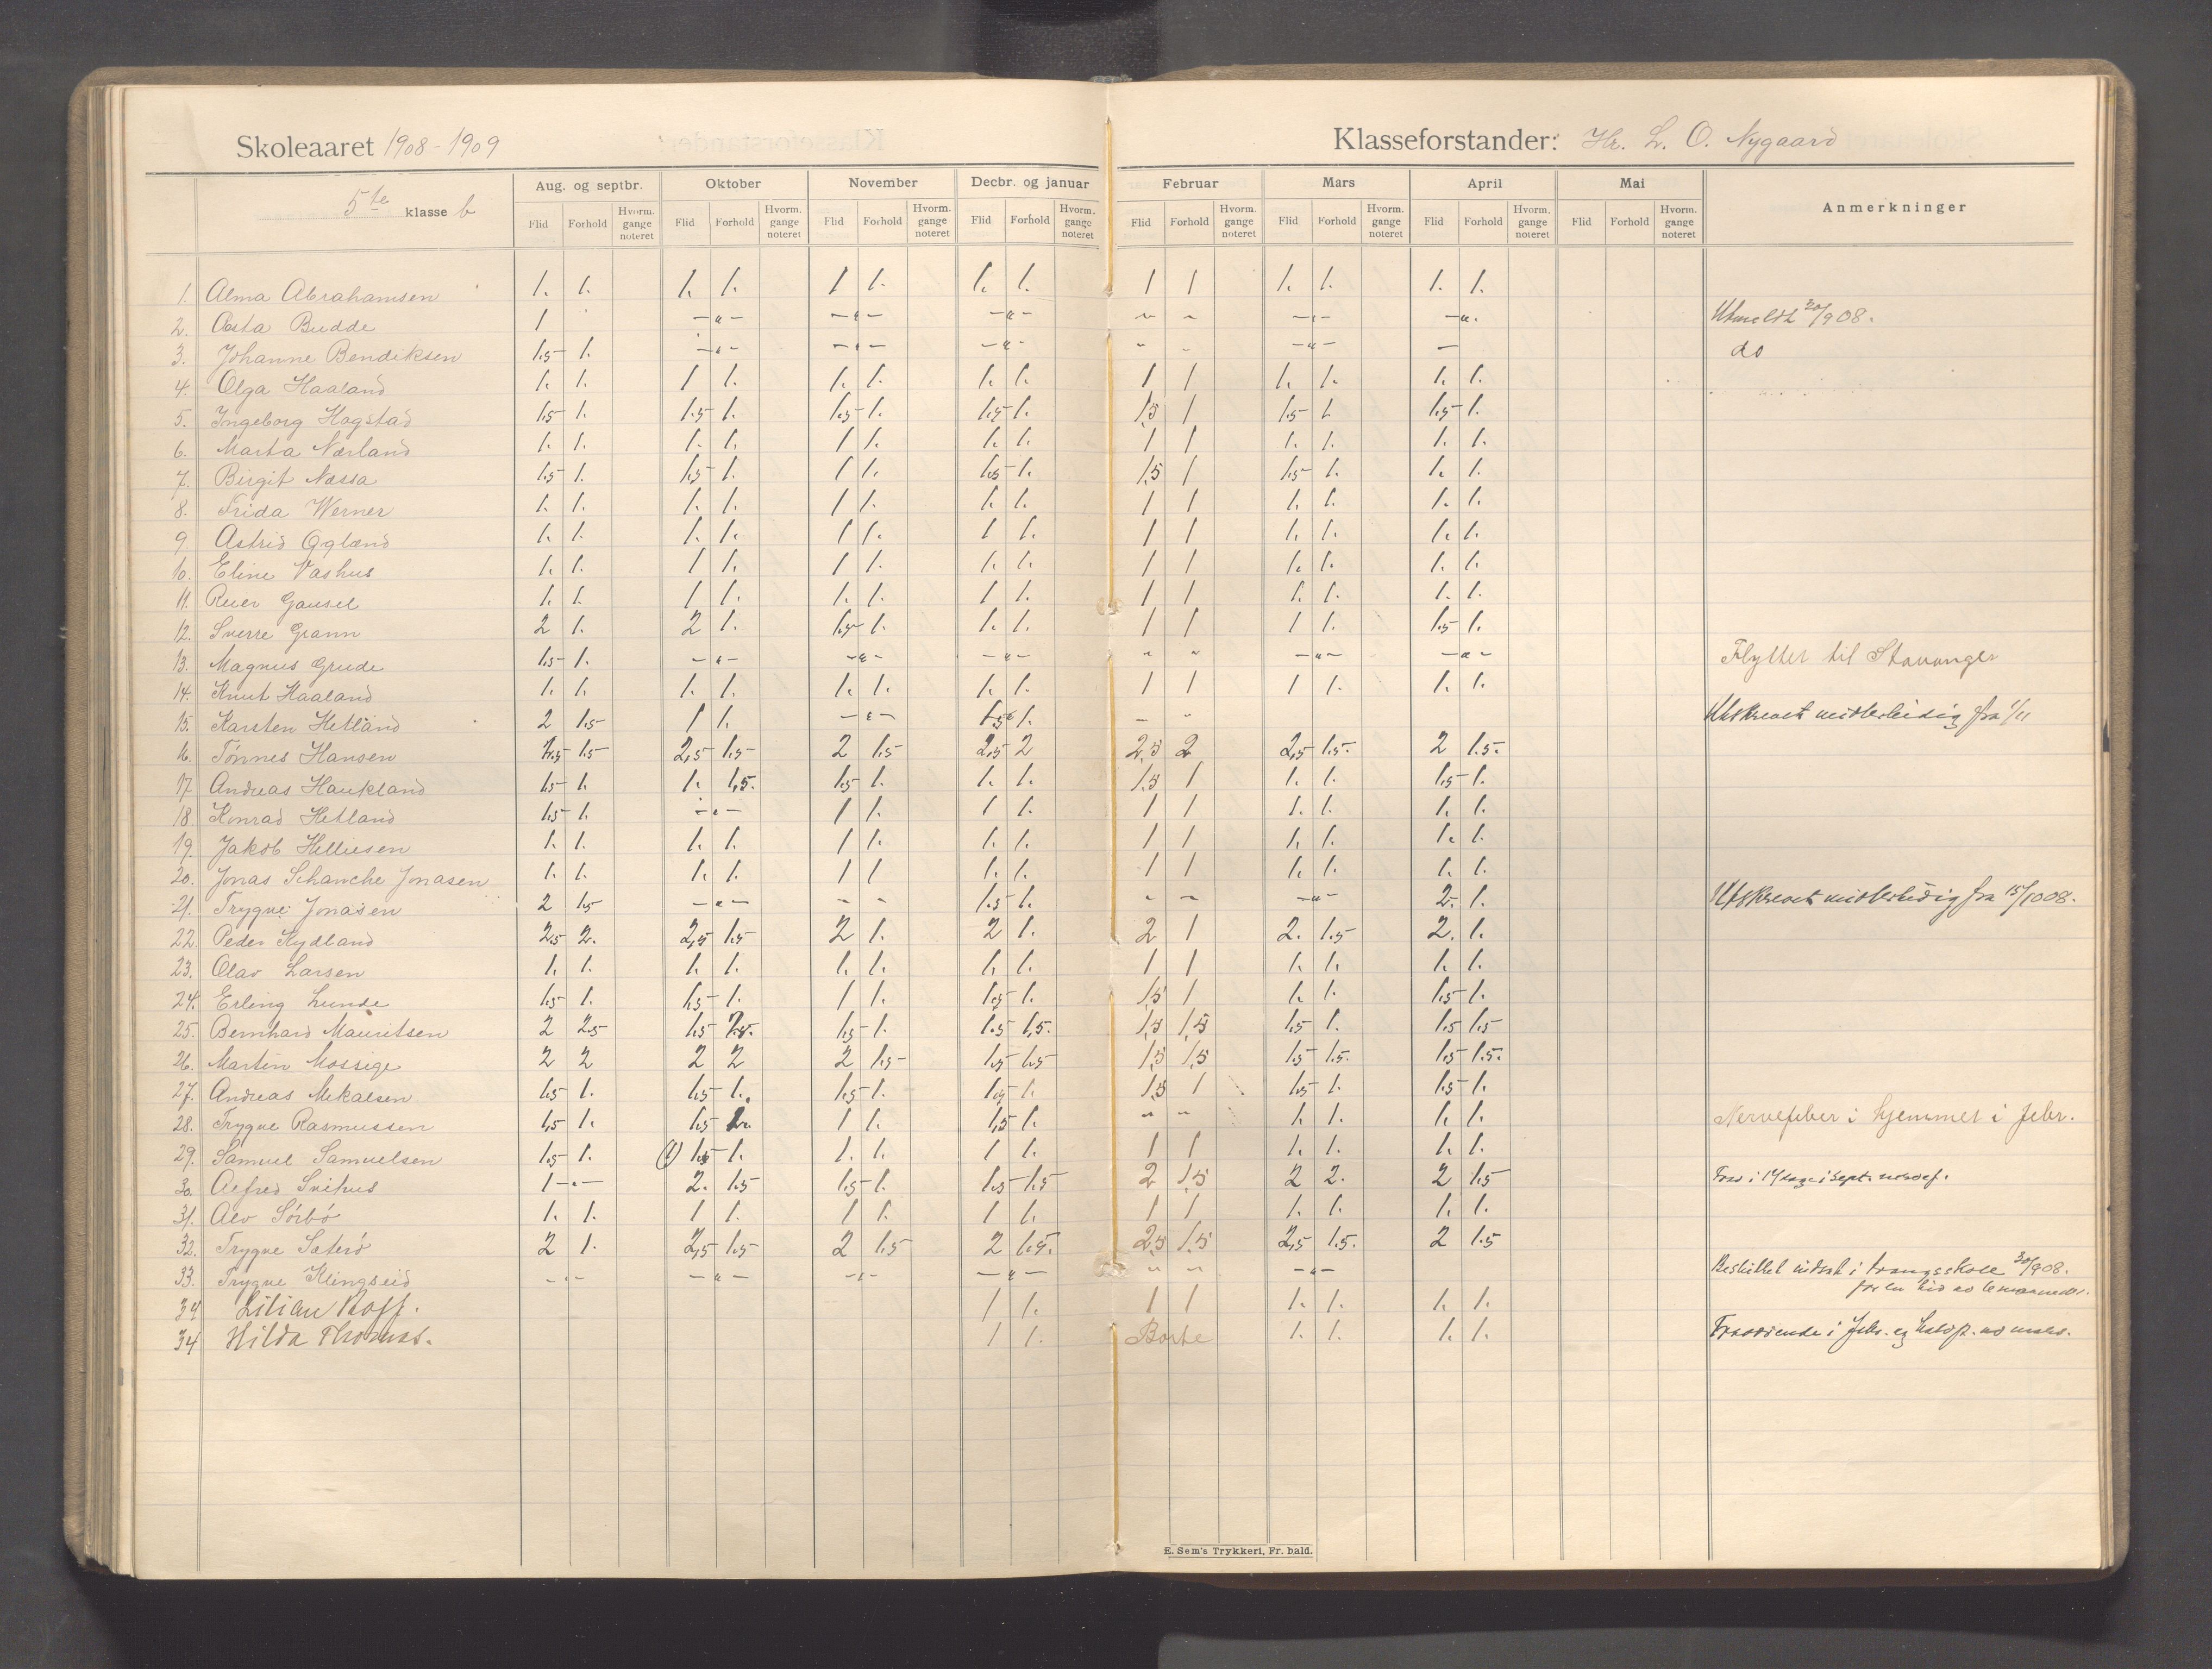 Skoleaaret 1908-1909 Klasseforstander: Hr. L. O. Nygaard
5te klasse b Aug. og septbr. Oktober November Decbr. og januar Februar Mars April Mai Anmerkninger
Flid Forhold Hvorm. gange noteret Flid Forhold Hvorm. gange noteret Flid Forhold Hvorm. gange noteret Flid Forhold Hvorm. gange noteret Flid Forhold Hvorm. gange noteret Flid Forhold Hvorm. gange noteret Flid Forhold Hvorm. gange noteret Flid Forhold Hvorm. gange noteret
1. Alma Abrahamsen 1. 1. 1. 1. 1 1. 1. 1. 1 1 1. 1. 1. 1.
2. Aasta Budde 1 -"- -"- -"- " " -"- -"- Utmeldt 30/9 08.
3. Johanne Bendiksen 1.5 1. -"- -"- -"- " " -"- - do
4. Olga Haaland 1. 1. 1 1. 1. 1. 1. 1. 1 1 1. 1. 1. 1.
5. Ingeborg Hogstad 1.5 1. 1.5 1. 1.5 1. 1.5 1. 1,5 1 1.5 1. 1.5 1.
6. Marta Nærland 1. 1. 1. 1. 1 1. 1. 1. 1 1 1. 1. 1. 1.
7. Birgit Næssa 1.5 1. 1.5 1. 1 1. 1.5 1. 1,5 1 1.5 1. 1. 1.
8. Frida Werner 1. 1. 1. 1. 1 1. 1. 1. 1 1 1. 1. 1. 1.
9. Astrid Ogland 1. 1. 1. 1. 1 1. 1 1. 1 1 1. 1. 1. 1.
10. Eline Vashus 1. 1. 1 1. 1 1. 1. 1. 1 1 1. 1. 1. 1.
11. Gausel 1. 1. 1 1. 1. 1. 1 1. 1 1 1. 1. 1. 1.
12. Sverre Grann 2 1. 2 1. 1.5 1. 1. 1. 1 1 1 1. 1.5 1.
13. Magnus Grude 1.5 1. -"- -"- -"- " " -"- -"- Flyttet til Stavanger
14. Knut Haaland 1. 1. 1. 1. 1. 1. 1. 1. 1 1 1 1. 1. 1.
15. Karsten Hetland 2 1.5 1 1. -"- 1.5 1. - " Utskrevet midlertidig fra 1/11
16. Tönnes Hansen 1.5 2,5 1.5 2 1.5 2,5 2 2,5 2 2,5 1.5. 2 1.5.
17. Andreas Haukland 1.5 1. 1. 1,5. 1.5 1. 1. 1. 1.5 1 1. 1. 1.5 1.
18. Konrad Hetland 1.5 1. -"- 1 1. 1 1. 1 1 1. 1. 1. 1.
19. Jakob Helliesen 1. 1. 1. 1. 1 1. 1. 1. 1 1 1. 1. 1. 1.
20. Jonas Schanche Jonasen 1. 1. 1. 1. 1 1 1. 1. 1 1 1. 1. 1. 1.
21. Trygve Jonasen 2 1.5 -"- - - 1.5 1. - - -"- 2. 1. Utskrevet midlertidig fra 15/10 08.
22. Peder Kydland 2.5 2. 2,5 1.5 2 1. 2 1. 2 1 2. 1.5 2. 1.
23. Olav Larsen 1. 1. 1. 1. 1. 1. 1. 1. 1 1 1. 1. 1. 1.
24. Erling Lunde 1.5 1. 1.5 1. 1 1. 1.5 1. 1,5 1 1. 1. 1.5 1.
25. Bernhard Mauritsen 2 2.5 1.5 1.5 1. 1.5 1,5. 1,5 1,5 1.5 1. 1.5 1.5
26. Martin Mossige 2 2 2 2 2 1.5 1.5 1.5 1,5 1,5 1.5 1.5. 1.5 1.5.
27. Andreas Mikalsen 1.5 1. 1.5 1. 1.5 1. 1.5 1. 1,5 1 1.5 1. 1.5 1.
28. Trygve Rasmussen 1,5 1. 1.5 1 1. 1,5 1. " " 1. 1. 1. 1. Nervefeber i hjemmet i febr.
29. Samuel Samuelsen 1.5 1. (1) 1.5 1. 1. 1. 1 1. 1 1 1. 1. 1. 1.
30. Alfred Svihus 1 -"- 2. 1.5 1.5 1. 1.5 1.5 2 1,5 2 2. 2 1.5 i sept.
31. Alv Sörbö 1. 1. 1 1. 1 1. 1 1. 1 1 1. 1. 1. 1.
32. Trygve Sæterö 2 1. 2,5 1.5 2 1.5 2 1.5. 2,5 1,5 2,5 1.5. 2 1.5
33. Trygve Klingseid -"- -"- -"- -"- " " -"- Besluttet indsat i tvangsskole 30/9 08.
for en tid av 6 maaneder.
34 Lilian Roff. 1 1. 1 1 1. 1. 1. 1.
34 Hilda Thomas. 1 1. Borte 1. 1. 1. 1. Fraværende i febr. og
E. Sem's Trykkeri, Fr.hald.